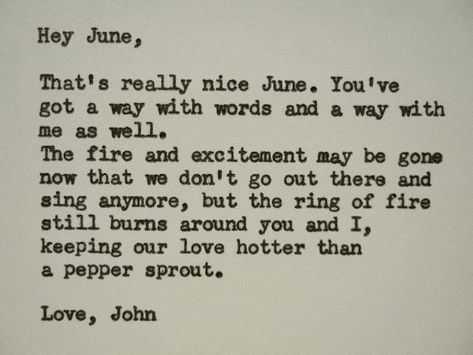 Hey June,
That's really nice June. You've
got a way with words and a way with
me as well.
The fire and excitement may be gone
now that we don't go out there and
sing anymore, but the ring of fire
still burns around you and I,
keeping our love hotter than
a pepper sprout.
Love, John